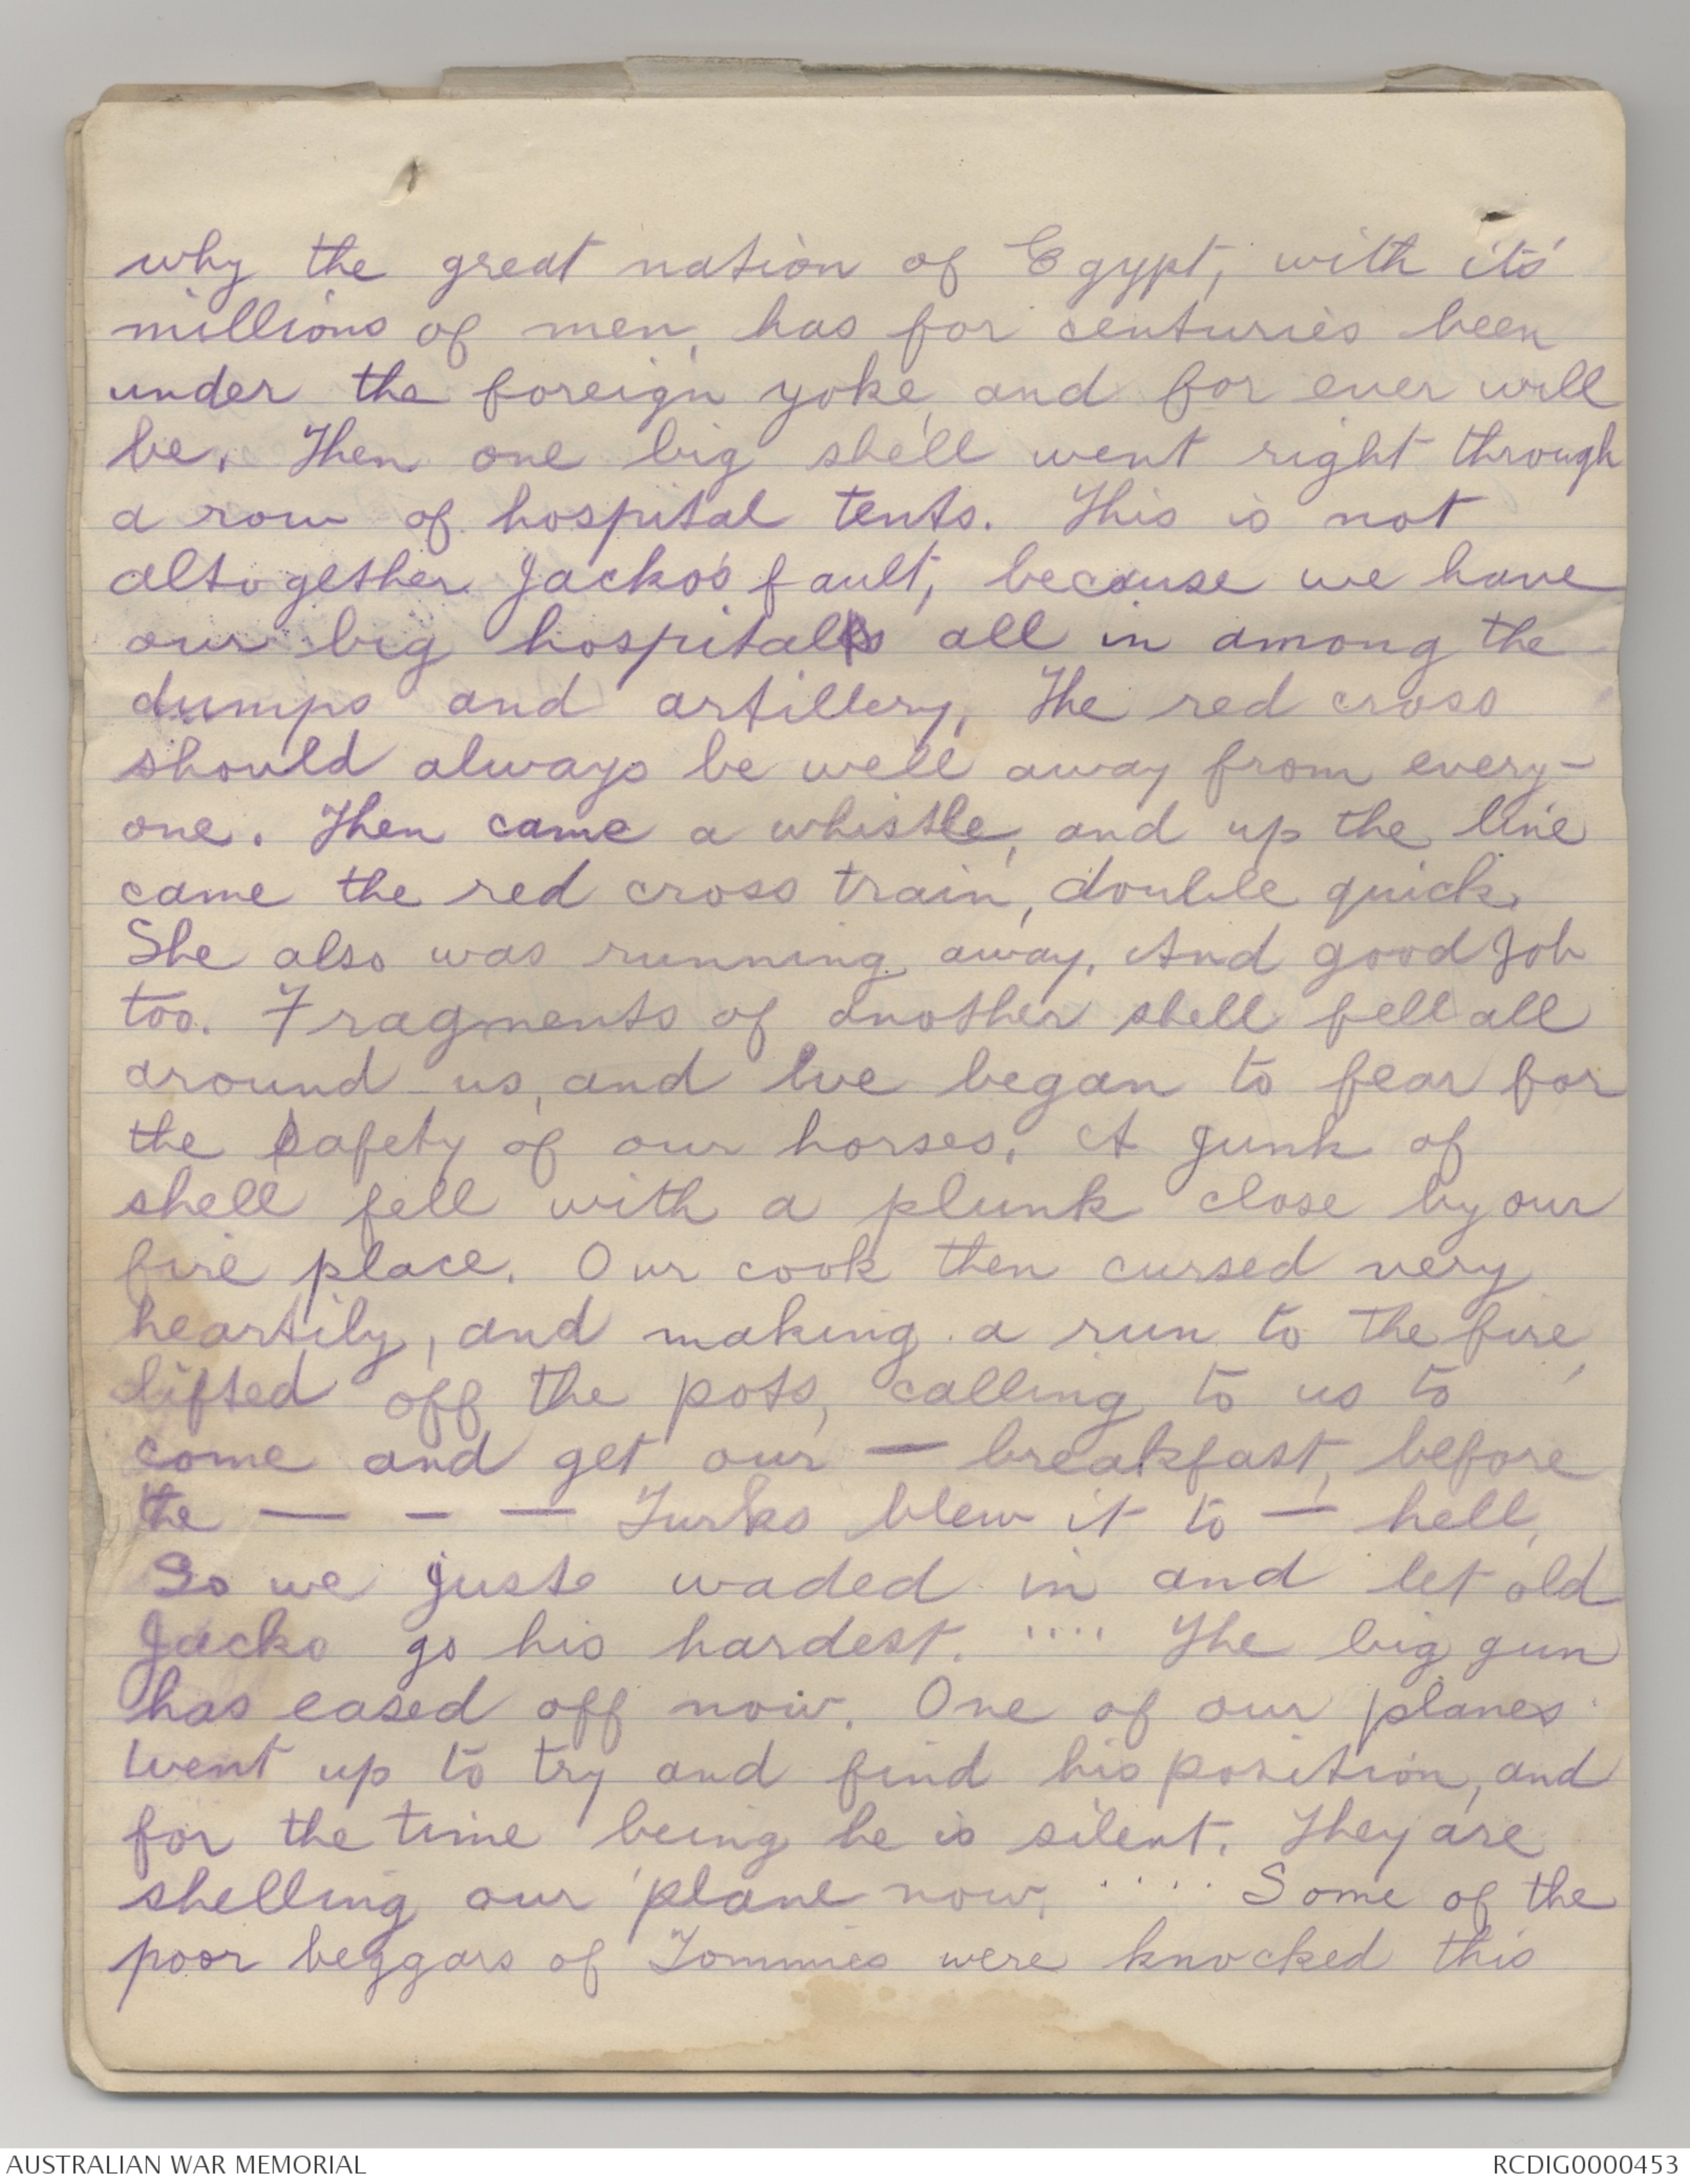 why the great nation of Egypt, with it's
millions of men, has for centuries been
under the foreign yoke, and for ever will
be. Then one big shell went right through
a row of hospital tents. This is not
altogether Jacko's fault, because we have
our big hospitals all in among the
dumps and artillery. The red cross
should always be well away from every-
one. Then came a whistle, and up the line
came the red cross train, double quick.
She also was running away. And good job
too. Fragments of another shell fell all
around us, and we began to fear for
the safety of our horses. A junk of
shell fell with a plunk close by our
fire place. Our cook then cursed very
heartily, and making a run to the fire,
lifted off the pots, calling to us to
come and get our — breakfast, before
the — – — Turks blew it to — hell.
So we just waded in and let old
Jacko go his hardest. .... The big gun
has eased off now. One of our planes
went up to try and find his position, and
for the time being he is silent. They are
shelling our 'plane now. ..... Some of the
poor beggars of Tommies were knocked this
AUSTRALIAN WAR MEMORIAL
RCDIG0000453